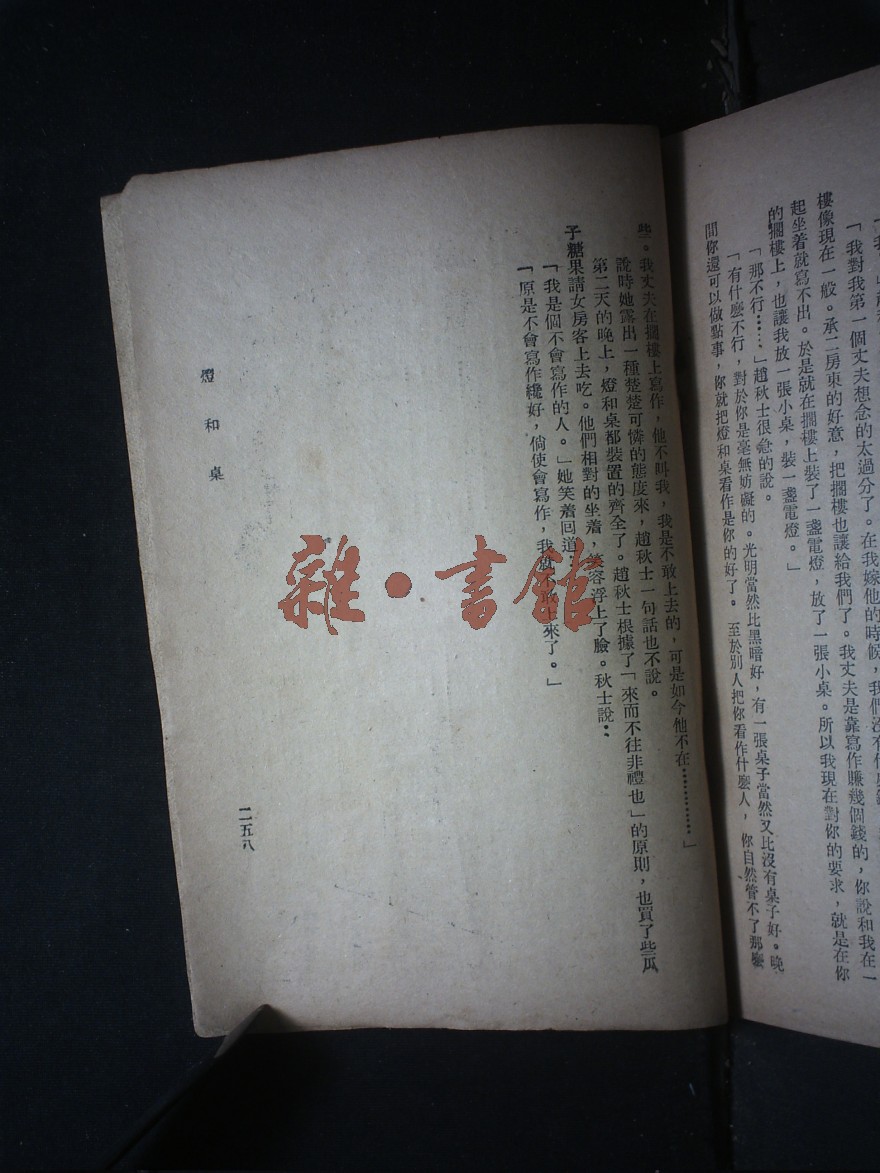 「我對我第一個丈夫想念的太過分了。在我嫁他的時候，我們沒有什
樓像現在一般。承二房東的好意，把擱樓也讓給我們了。我丈夫是靠寫作賺幾個錢的，你說和我在一
起坐着就寫不出。於是就在擱樓上裝了一盞電燈，放了一張小桌。所以我現在對你的要求，就是在你
的擱樓上，也讓我放一張小桌，裝一盞電燈。」
「那不行……」趙秋士很急的說。
「有什麽不行，對於你是毫無妨礙的。光明當然比黑暗好，有一張桌子當然又比沒有桌子好。晚
間你還可以做點事，你就把燈和桌看作是你的好了。至於別人把你看作什麽人，你自然管不了那麽
些。我丈夫在擱樓上寫作，他不叫我，我是不敢上去的，可是如今他不在…………」
說時她露出一種楚楚可憐的態度來，趙秋士一句話也不說。
第二天的晚上，燈和桌都裝置的齊全了。趙秋士根據了「來而不往非禮也」的原則，也買了些瓜
子糖果請女房客上去吃。他們相對的坐着，容浮上了臉。秋士說：
「我是個不會寫作的人。」她笑着回道
「原是不會寫作纔好，倘使會寫作，我就不敢上來了。」
燈和桌
二五八
雜·書館